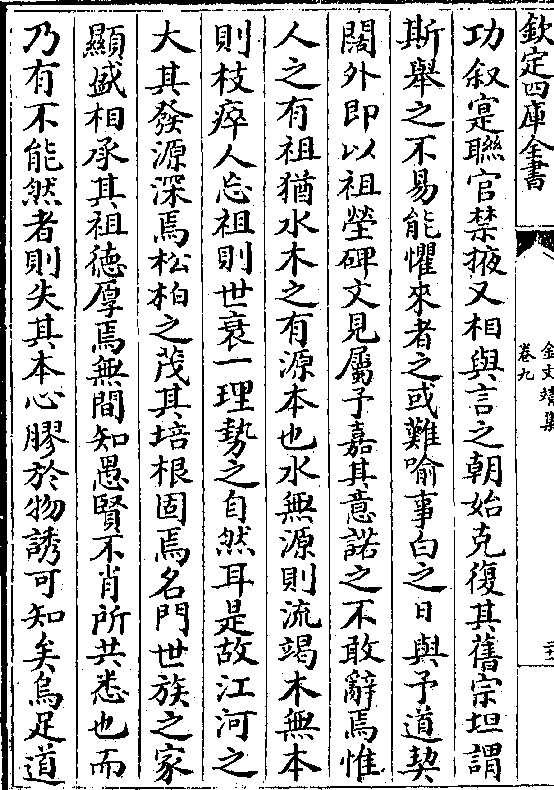 欽定四庫全書
金文靖集
卷九
功叙寔聯官禁掖又相與言之朝始克復其舊宗坦謂
斯舉之不易能懼來者之或難喻事白之日與予道契
闊外即以祖塋碑文見屬予嘉其意諾之不敢辭焉惟
人之有祖猶水木之有源本也水無源則流竭木無本
則枝瘁人忘祖則世衰一理勢之自然耳是故江河之
大其發源深焉松柏之茂其培根固焉名門世族之家
顯盛相承其祖徳厚焉無間知愚賢不肖所共悉也而
乃有不能然者則失其本心膠於物誘可知矣烏足道